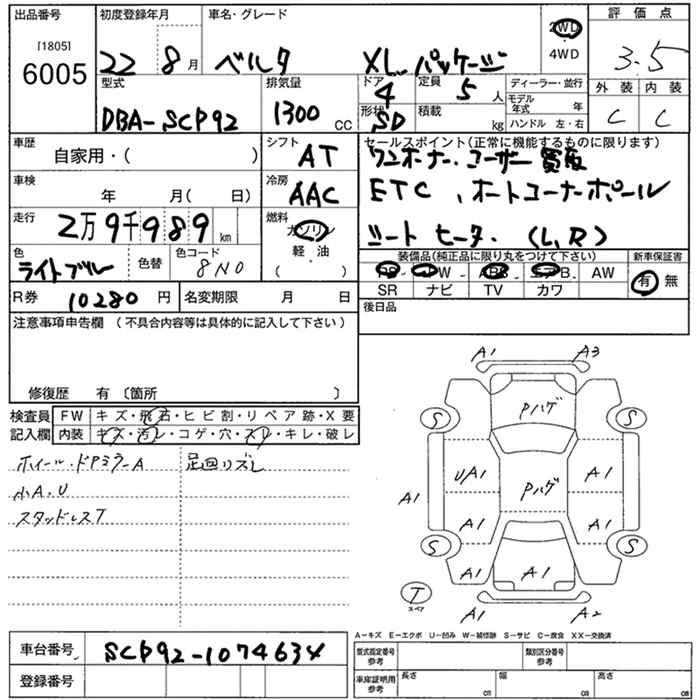 出品番号 初度登録年月 車名・グレード 評価点
[1805]
6005
22 8月 ベルタ XLパッケージ 2WD 3.5
4WD
型式 排気量 ドア 定員 ディーラー・並行 外装 内装
DBA-SCP92 1300CC 4 5人 モデル年式 年 C C
形状 積載
SD kg ハンドル 左・右
車歴 シフト セールスポイント(正常に機能するものに限ります)
自家用・( ) AT ワンオーナー・ユーザー買取
車検 冷房 ETC、オートコーナーポール
年 月( 日) AAC
走行 燃料 シートヒーター(L,R)
2万9千989km ガソリン
色 色替 色コード 軽・油 装備品(純正品に限り丸をつけて下さい) 新車保証書
ライトブルー 8N0 ( ) PS PW ABS エアB AW 有 無
SR ナビ TV カワ
R券 10280円 名変期限 月 日 後日品
注意事項申告欄(不具合内容等は具体的に記入して下さい)
修復歴 有〔箇所 〕
検査員 FW キズ・飛石・ヒビ割・リペア跡・X要
記入欄 内装 キズ・汚レ・コゲ・穴・スレ・キレ・破レ
ホイール・ドアミラーA 足回リズレ
小A.U
スタッドレスT
A1 A3
Pハゲ
S S
UA1 A1
Pハゲ
A1 A1
A1 A1
S S
A1 A1 A1
T
スペア
A1 A2
A-キズ E-エクボ U-凹み W-補修跡 S-サビ C-腐食 XX-交換済
車台番号 SCP92-1074634 型式指定番号 参考 類別区分番号 参考
登録番号 車庫証明用 参考 長さ cm 幅 cm 高さ cm